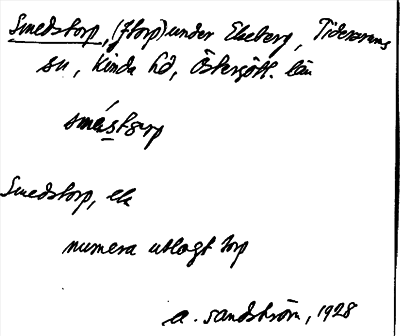 Smedstorp, (f torp) under Ekeberg, Tidersrums
sn, Kinda hd, Östergötl. län
smästorp
Smedstorp, ek
numera utlagt torp
A. Sandström, 1928